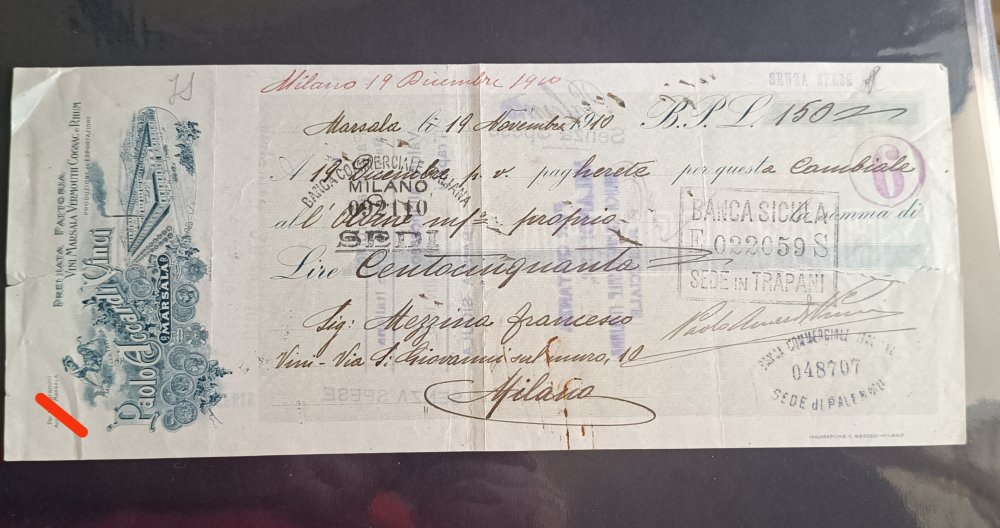 PREMIATA FATTORIA
VINI MARSALA VERMOUTH COGNAC E RHUM
PRODUZIONE ED ESPORTAZIONE
MARSALA
Milano 19 Dicembre 1910
SENZA SPESE
Marsala li 19 Novembre 1910 B.P.L. 150
A 19 Dicembre p.v. pagherete per questa Cambiale
all'Ordine proprio la somma di
Lire Centocinquanta
Sig: Mezzina Francesco
Vini - Via S. Giovanni sul muro, 10
Milano
BANCA COMMERCIALE ITALIANA
MILANO
092110
SEDE
6
BANCA SICULA
E 022059 S
SEDE IN TRAPANI
BANCA COMMERCIALE ITALIANA
048707
SEDE di PALERMO
SENZA SPESE